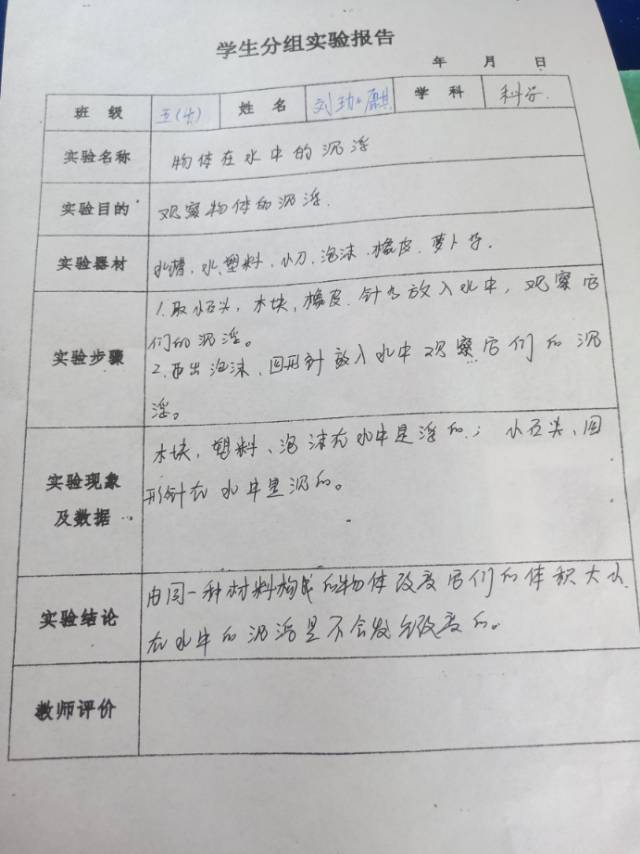 学生分组实验报告
年 月 日
班 级 五(4) 姓 名 刘 麒 学 科 科学.
实验名称 物体在水中的沉浮
实验目的 观察物体的沉浮.
实验器材 水槽、水、塑料、小刀、泡沫、橡皮、萝卜等.
1.取小石头,木块,橡皮.针等放入水中,观察它
实验步骤 们的沉浮。
2.再出泡沫、回形针放入水中观察它们的沉
浮。
木块,塑料、泡沫在水中是浮的;小石头、回
实验现象 形针在水中是沉的。
及数据
由同一种材料构成的物体改变它们的体积大小
实验结论 在水中的沉浮是不会发生改变的。
教师评价